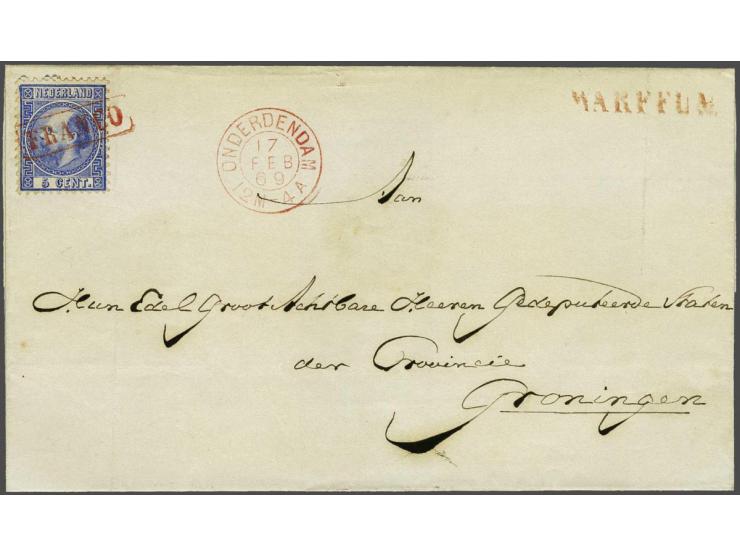 NEDERLAND
FRANCO
5 CENT.
WARFFUM
ONDERDENDAM
17
FEB
69
12M 4A
Aan
Hun Edel Groot Achtbare Heeren Gedeputeerde Staten
der Provincie
Groningen